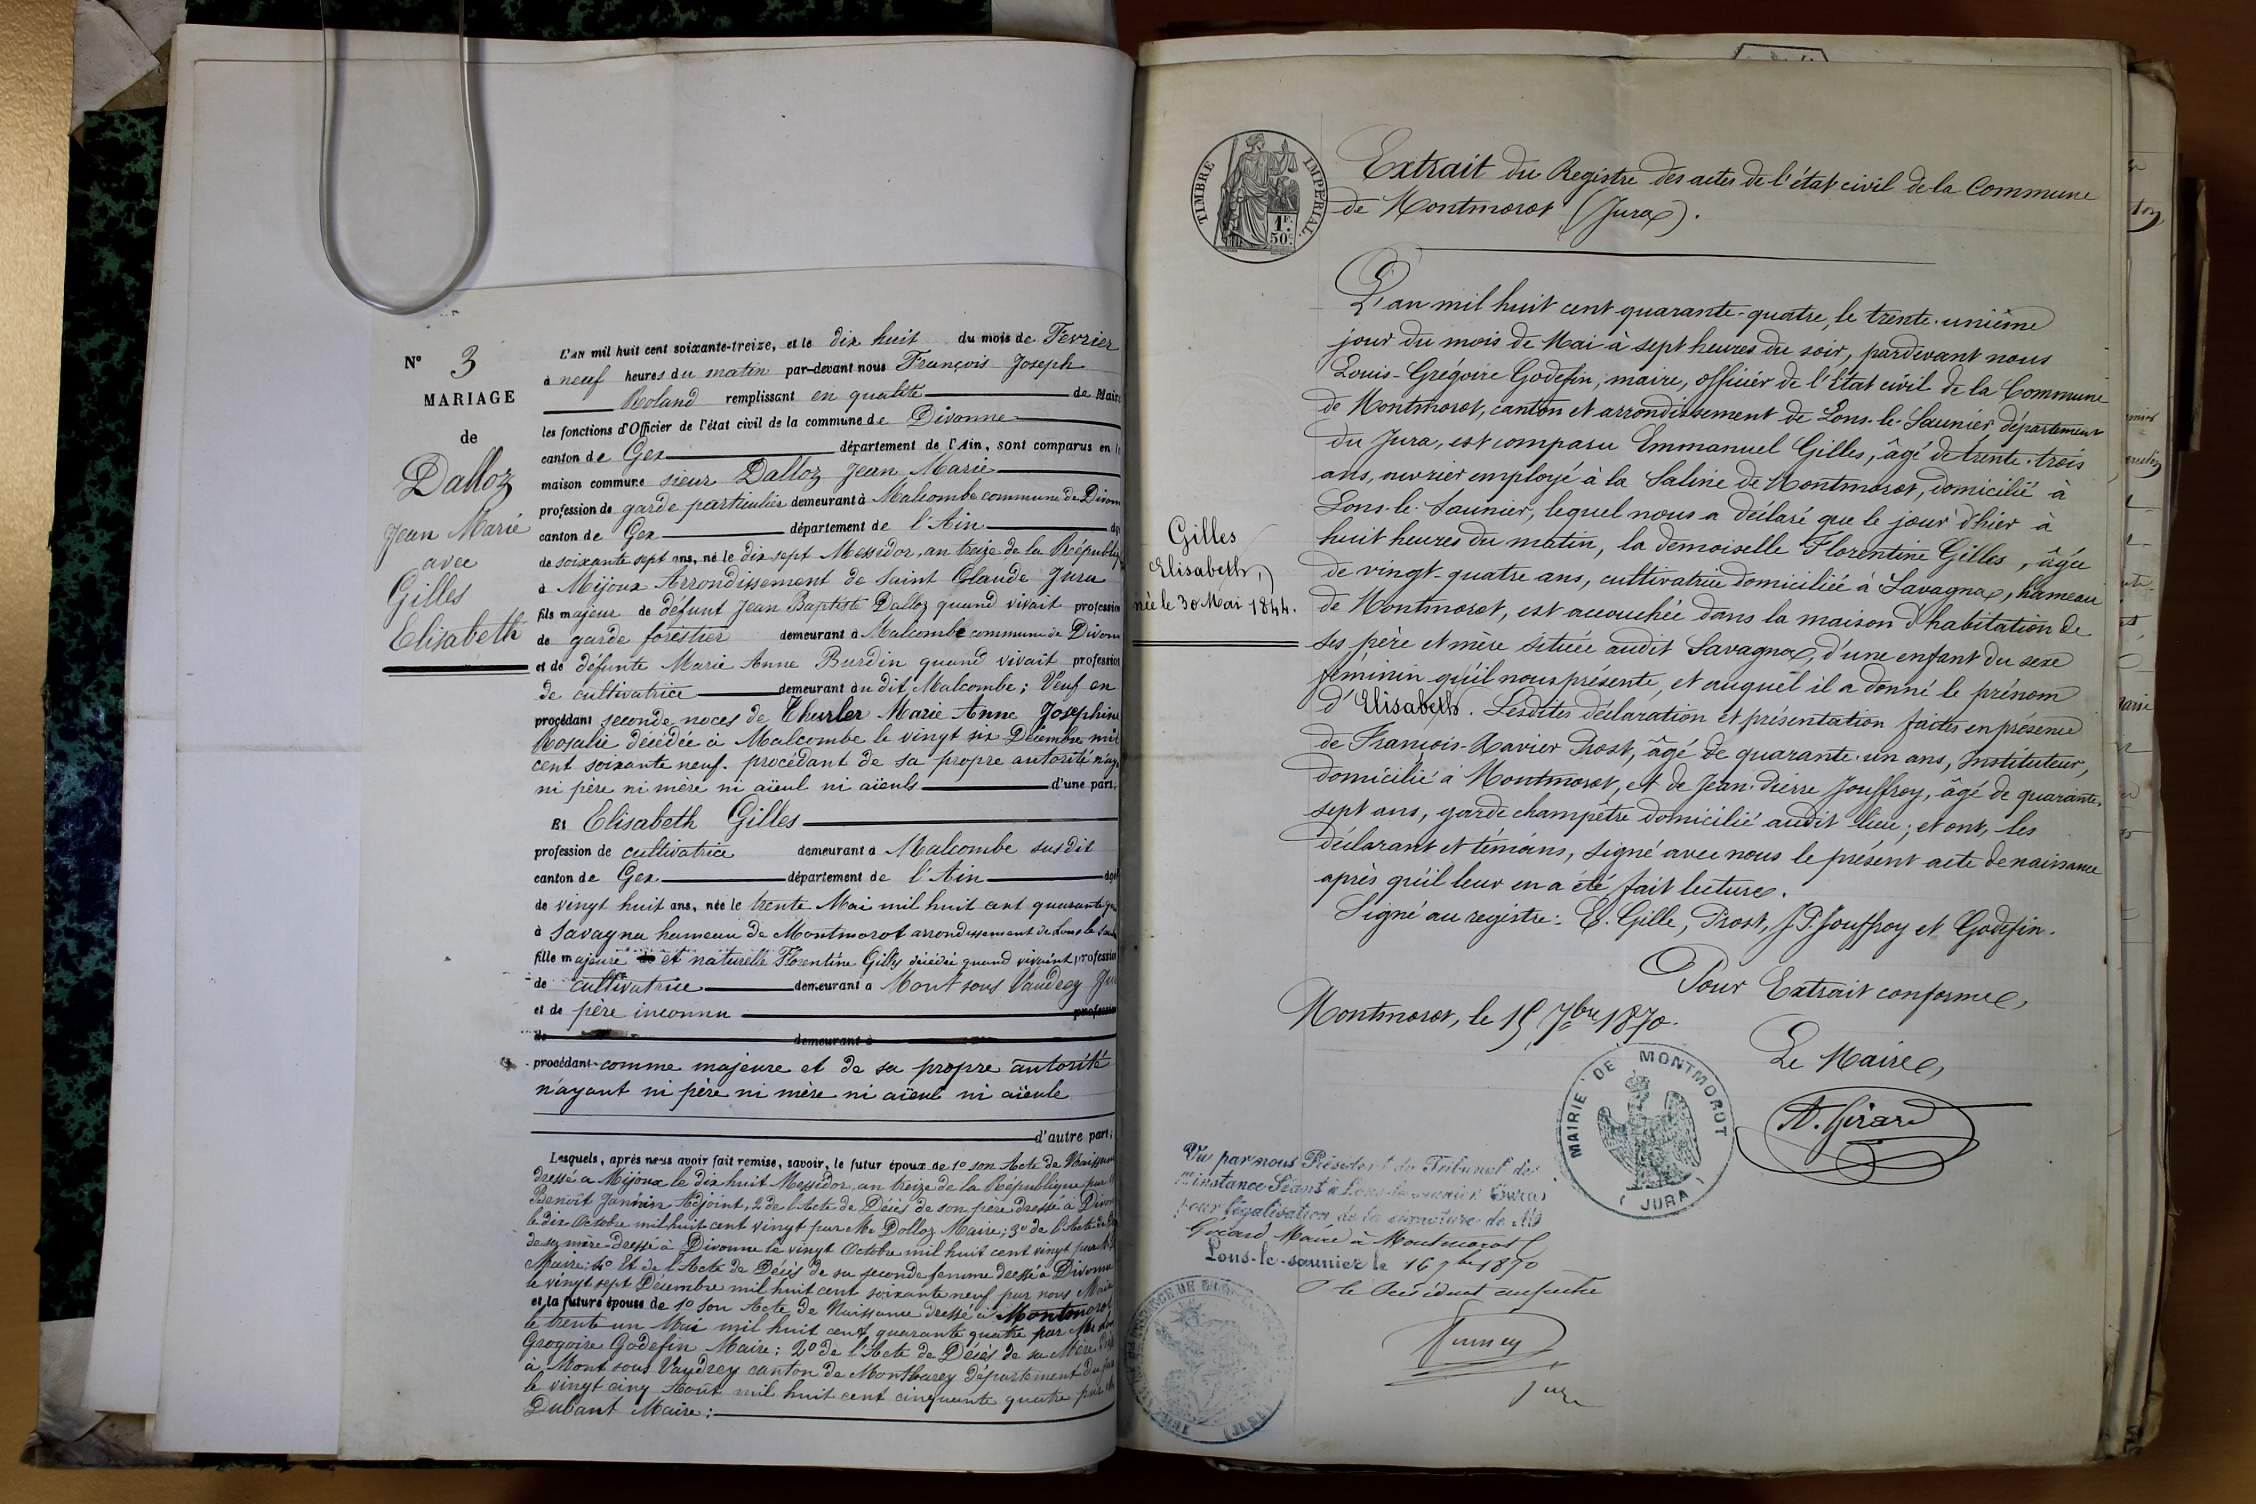 N° 3
MARIAGE
de
Dalloz
Jean Marie
avec
Gilles
Elisabeth
L'an mil huit cent soixante-treize, et le dix huit du mois de Février
à neuf heures du matin par-devant nous François Joseph
Roland remplissant en qualité de Maire
les fonctions d'Officier de l'état civil de la commune de Divonne
canton de Gex département de l'Ain, sont comparus en la
maison commune sieur Dalloz Jean Marie
profession de garde particulier demeurant à Malcombe commune de Divonn
canton de Gex département de l'Ain âgé
de soixante sept ans, né le dix sept Messidor, an treize de la République
à Mijoux Arrondissement de Saint Claude Jura
fils majeur de défunt Jean Baptiste Dalloz quand vivait profession
de garde forestier demeurant à Malcombe commune de Divonn
et de défunte Marie Anne Burdin quand vivait profession
de cultivatrice demeurant au dit Malcombe; Veuf en
procédant seconde noces de Thurler Marie Anne Josephine
Rosalie décédée à Malcombe le vingt six Décembre mil
cent soixante neuf. procédant de sa propre autorité n'aya
ni père ni mère ni aïeul ni aïeuls d'une part,
Et Elisabeth Gilles
profession de cultivatrice demeurant à Malcombe susdit
canton de Gex département de l'Ain âgée
de vingt huit ans, née le trente Mai mil huit cent quarante qu
à Savagna hameau de Montmorot arrondissement de Lons le Sau
fille majeure et naturelle Florentine Gilles décédée quand vivait profession
de cultivatrice demeurant à Mont sous Vaudrey Ju
et de père inconnu profession
de demeurant à
procédant comme majeure et de sa propre autorité
n'ayant ni père ni mère ni aïeul ni aïeule
d'autre part;
Lesquels, après nous avoir fait remise, savoir, le futur époux de 1° son Acte de Naissance
dressé à Mijoux le dix huit Messidor, an treize de la République par
Benoît Adjoint, 2° de l'Acte de Décès de son père dressé à Divon
le dix Octobre mil huit cent vingt par Mr Dolloz Maire; 3° de l'Acte de
de sa mère dressé à Divonne le vingt Octobre mil huit cent vingt par
Maire; 4° Et de l'Acte de Décès de sa seconde femme dressé à Divonne
le vingt sept Décembre mil huit cent soixante neuf par nous Maire
et la future épouse de 1° son Acte de Naissance dressé à Montmorot
le trente un Mai mil huit cent quarante quatre par Mr Lou
Grogoire Godefin Maire; 2° de l'Acte de Décès de sa Mère
à Mont sous Vaudrey canton de Montbarey département du Jura
le vingt cinq Août mil huit cent cinquante quatre par
Dubant Maire:
TIMBRE IMPERIAL
1F.
50c.
Extrait du Registre des actes de l'état civil de la Commune
de Montmorot (Jura).
L'an mil huit cent quarante-quatre, le trente-unième
jour du mois de Mai à sept heures du soir, pardevant nous
Louis-Grégoire Godefin, maire, officier de l'État civil de la Commune
de Montmorot, canton et arrondissement de Lons-le-Saunier département
du Jura, est comparu Emmanuel Gilles, âgé de trente-trois
ans, ouvrier employé à la Saline de Montmorot, domicilié à
Lons-le-Saunier, lequel nous a déclaré que le jour d'hier à
huit heures du matin, la demoiselle Florentine Gilles, âgée
de vingt-quatre ans, cultivatrice domiciliée à Savagna, hameau
de Montmorot, est accouchée dans la maison d'habitation de
ses père et mère située audit Savagna, d'une enfant du sexe
féminin qu'il nous présente, et auquel il a donné le prénom
d'Elisabeth. Lesdites déclaration et présentation faites en présence
de François-Xavier Prost, âgé de quarante-un ans, Instituteur,
domicilié à Montmorot, et de Jean-Pierre Jouffroy, âgé de quarante-
sept ans, garde champêtre domicilié audit lieu; et ont, les
déclarant et témoins, signé avec nous le présent acte de naissance
après qu'il leur en a été fait lecture.
Signé au registre: E. Gille, Prost, J.P. Jouffroy et Godefin.
Gilles
Elisabeth,
née le 30 Mai 1844.
Pour Extrait conforme,
Montmorot, le 15 7bre 1870.
Le Maire,
A. Girard
MAIRIE DE MONTMOROT
(JURA)
Vu par nous Président du Tribunal de
1re instance Séant à Lons-le-saunier (Jura)
pour légalisation de la signature de Mr
Girard Maire à Montmorot
Lons-le-saunier le 16 7bre 1870